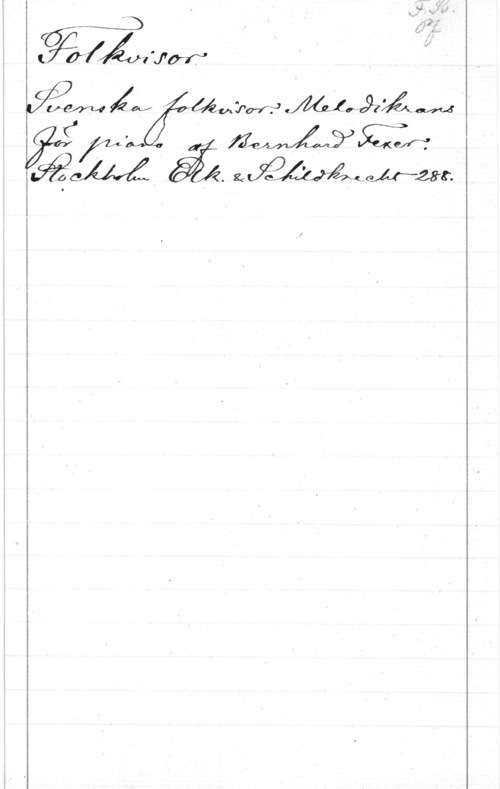 F. B.
Pf
Folkvisor
Svenska folkvisor. Melodikrans
för piano af Bernhard Fexer.
Stockholm Elk. & Schildknecht 288.